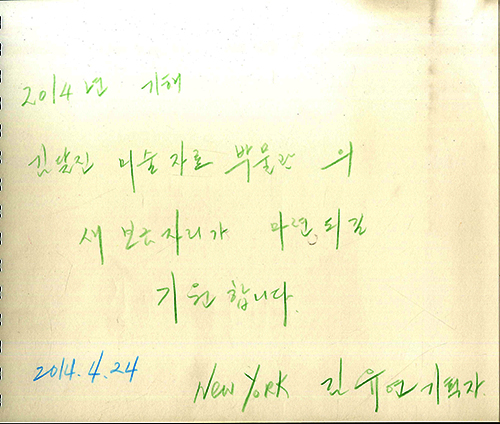 2014년 기해
김달진 미술자료 박물관 의
새 보금자리가 마련되길
기원합니다.
2014.4.24
New York 김유연 기획자